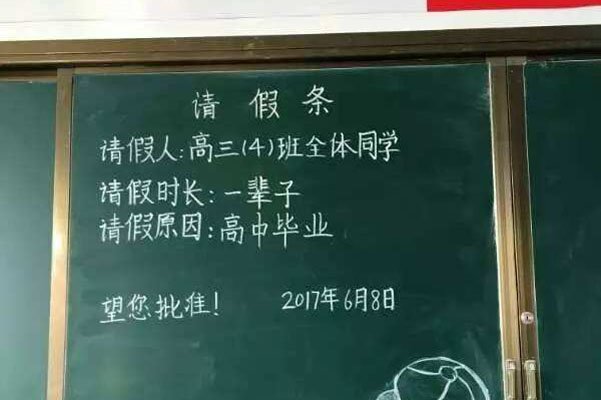 请假条
请假人:高三(4)班全体同学
请假时长:一辈子
请假原因:高中毕业
望您批准! 2017年6月8日